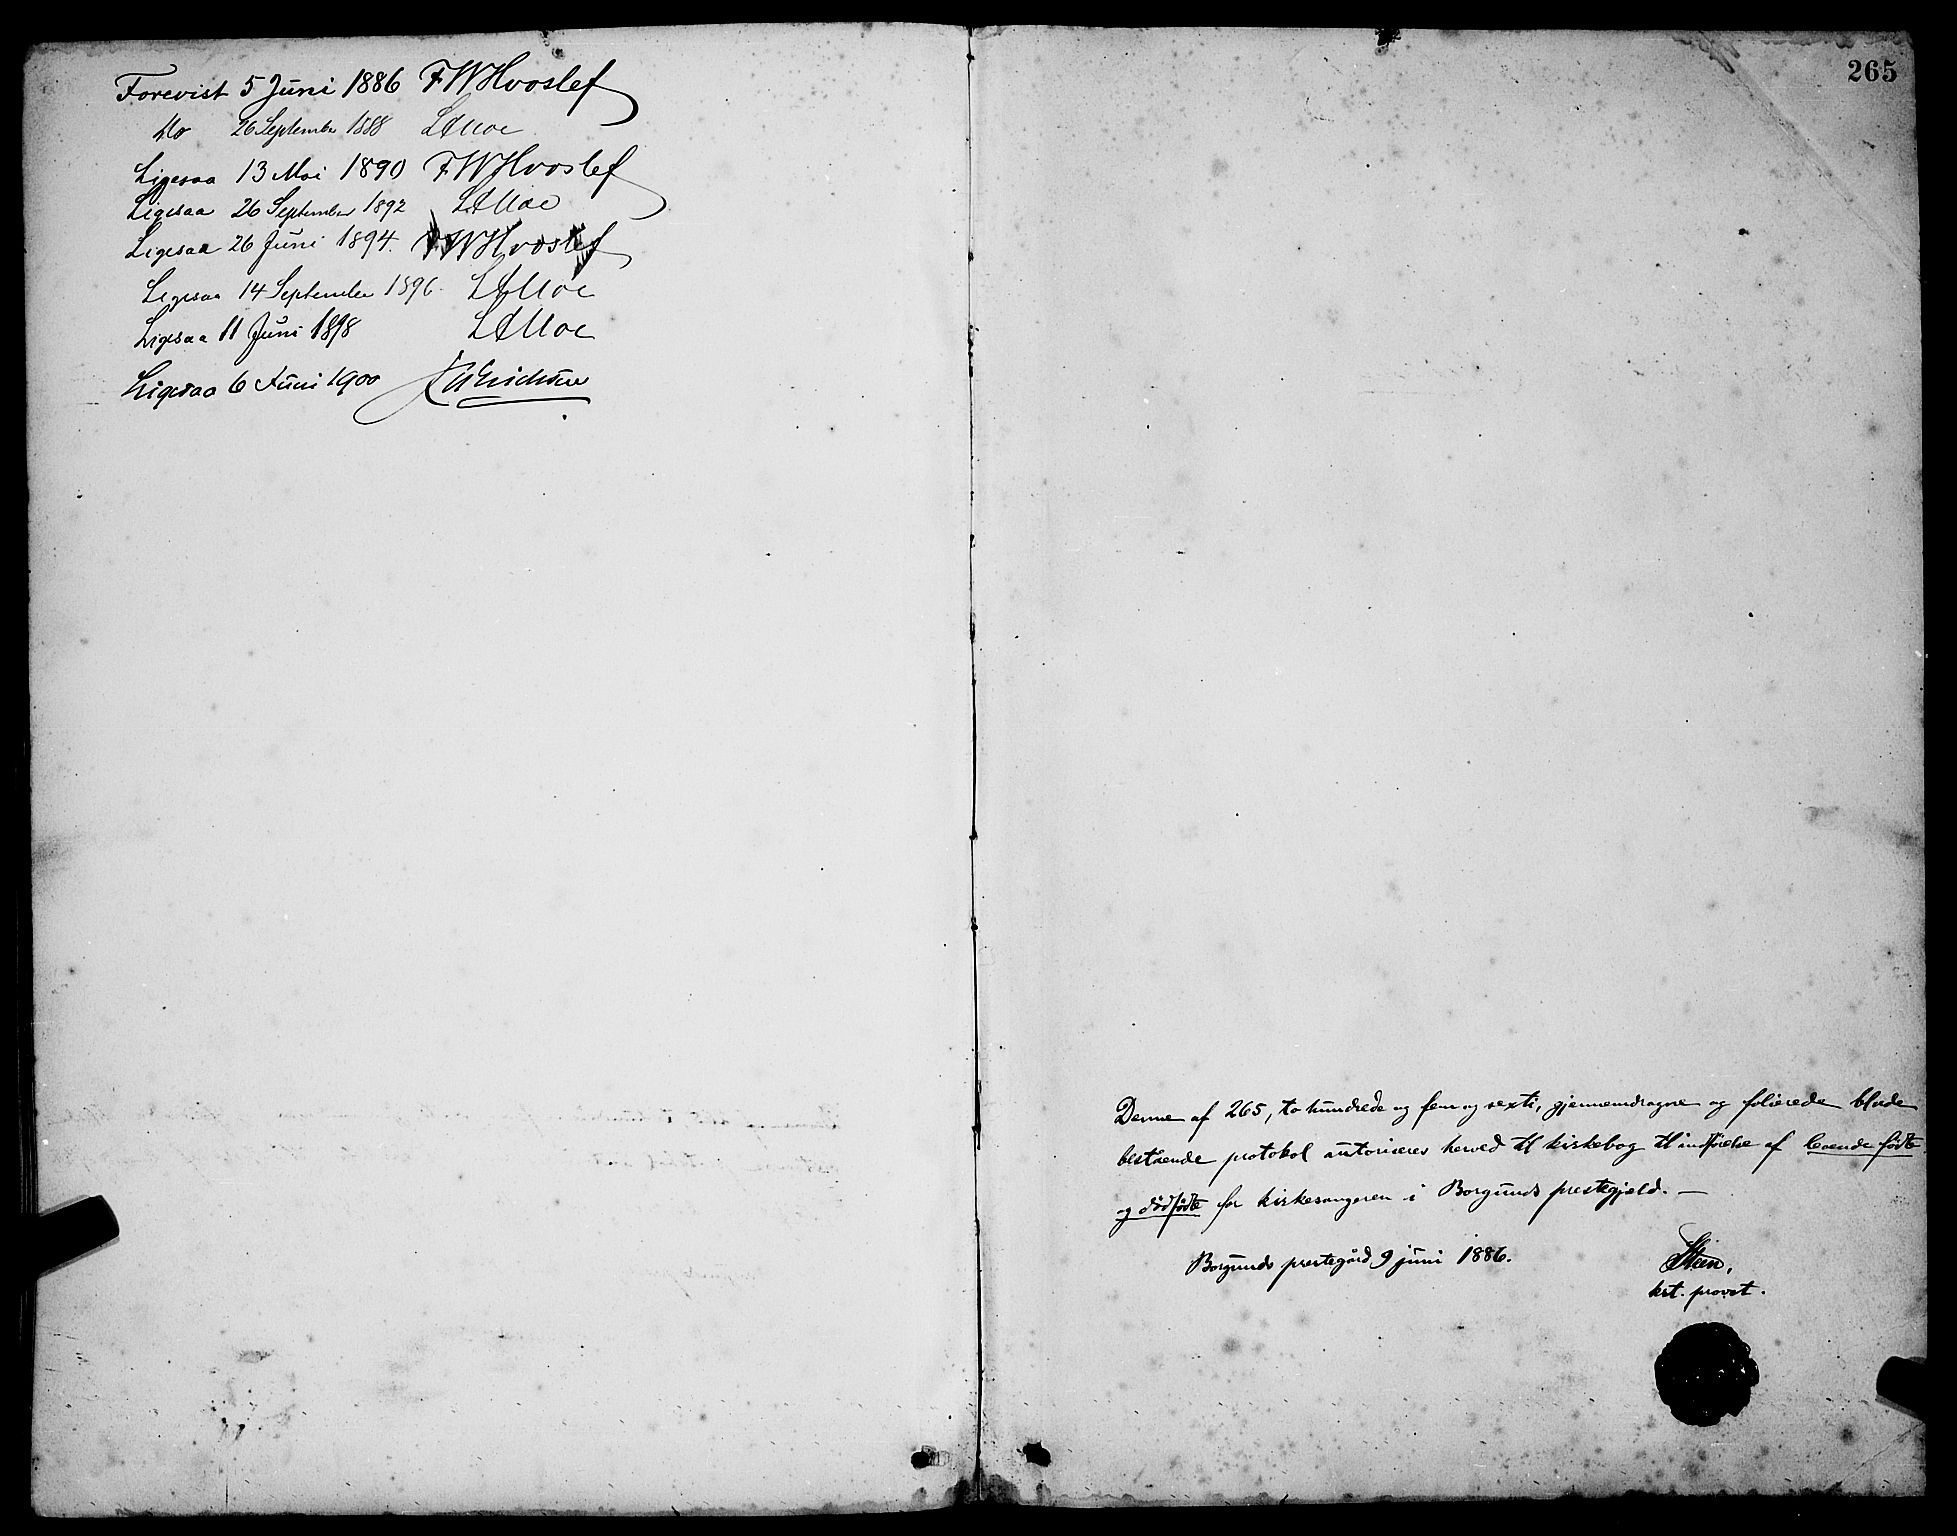 Forevist 5 Juni 1886 FWHvoslef
Do 26 September 1888 LAMoe
Ligesaa 13 Mai 1890 FWHvoslef
Ligesaa 26 September 1892 LAMoe
Ligesaa 26 Juni 1894. FWHvoslef
Ligesaa 14 September 1896. LAMoe
Ligesaa 11 Juni 1898 LAMoe
Ligesaa 6 Juni 1900
265
Denne af 265, to hundrede og fem og sexti, gjennemdragne og folierede blade
bestående protokol autoriseres herved til kirkebog til indførelse af levende fødte
og dødfødte for kirkesangeren i Borgunds prestegjeld. —
Borgunds prestegård 9 juni 1886.
Steen,
kst. provst.